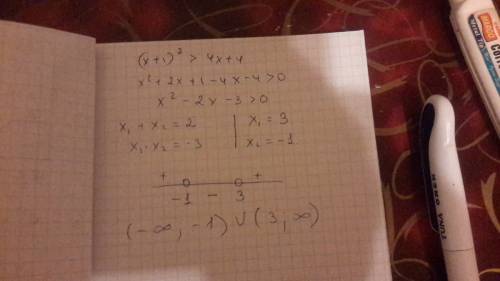 (x+1)² > 4x+4
x²+2x+1-4x-4>0
x²-2x-3>0
x₁+x₂=2 | x₁=3
x₁·x₂=-3 | x₂=-1
+ +
-1 - 3
(-∞, -1) ∪ (3, ∞)
TUNA